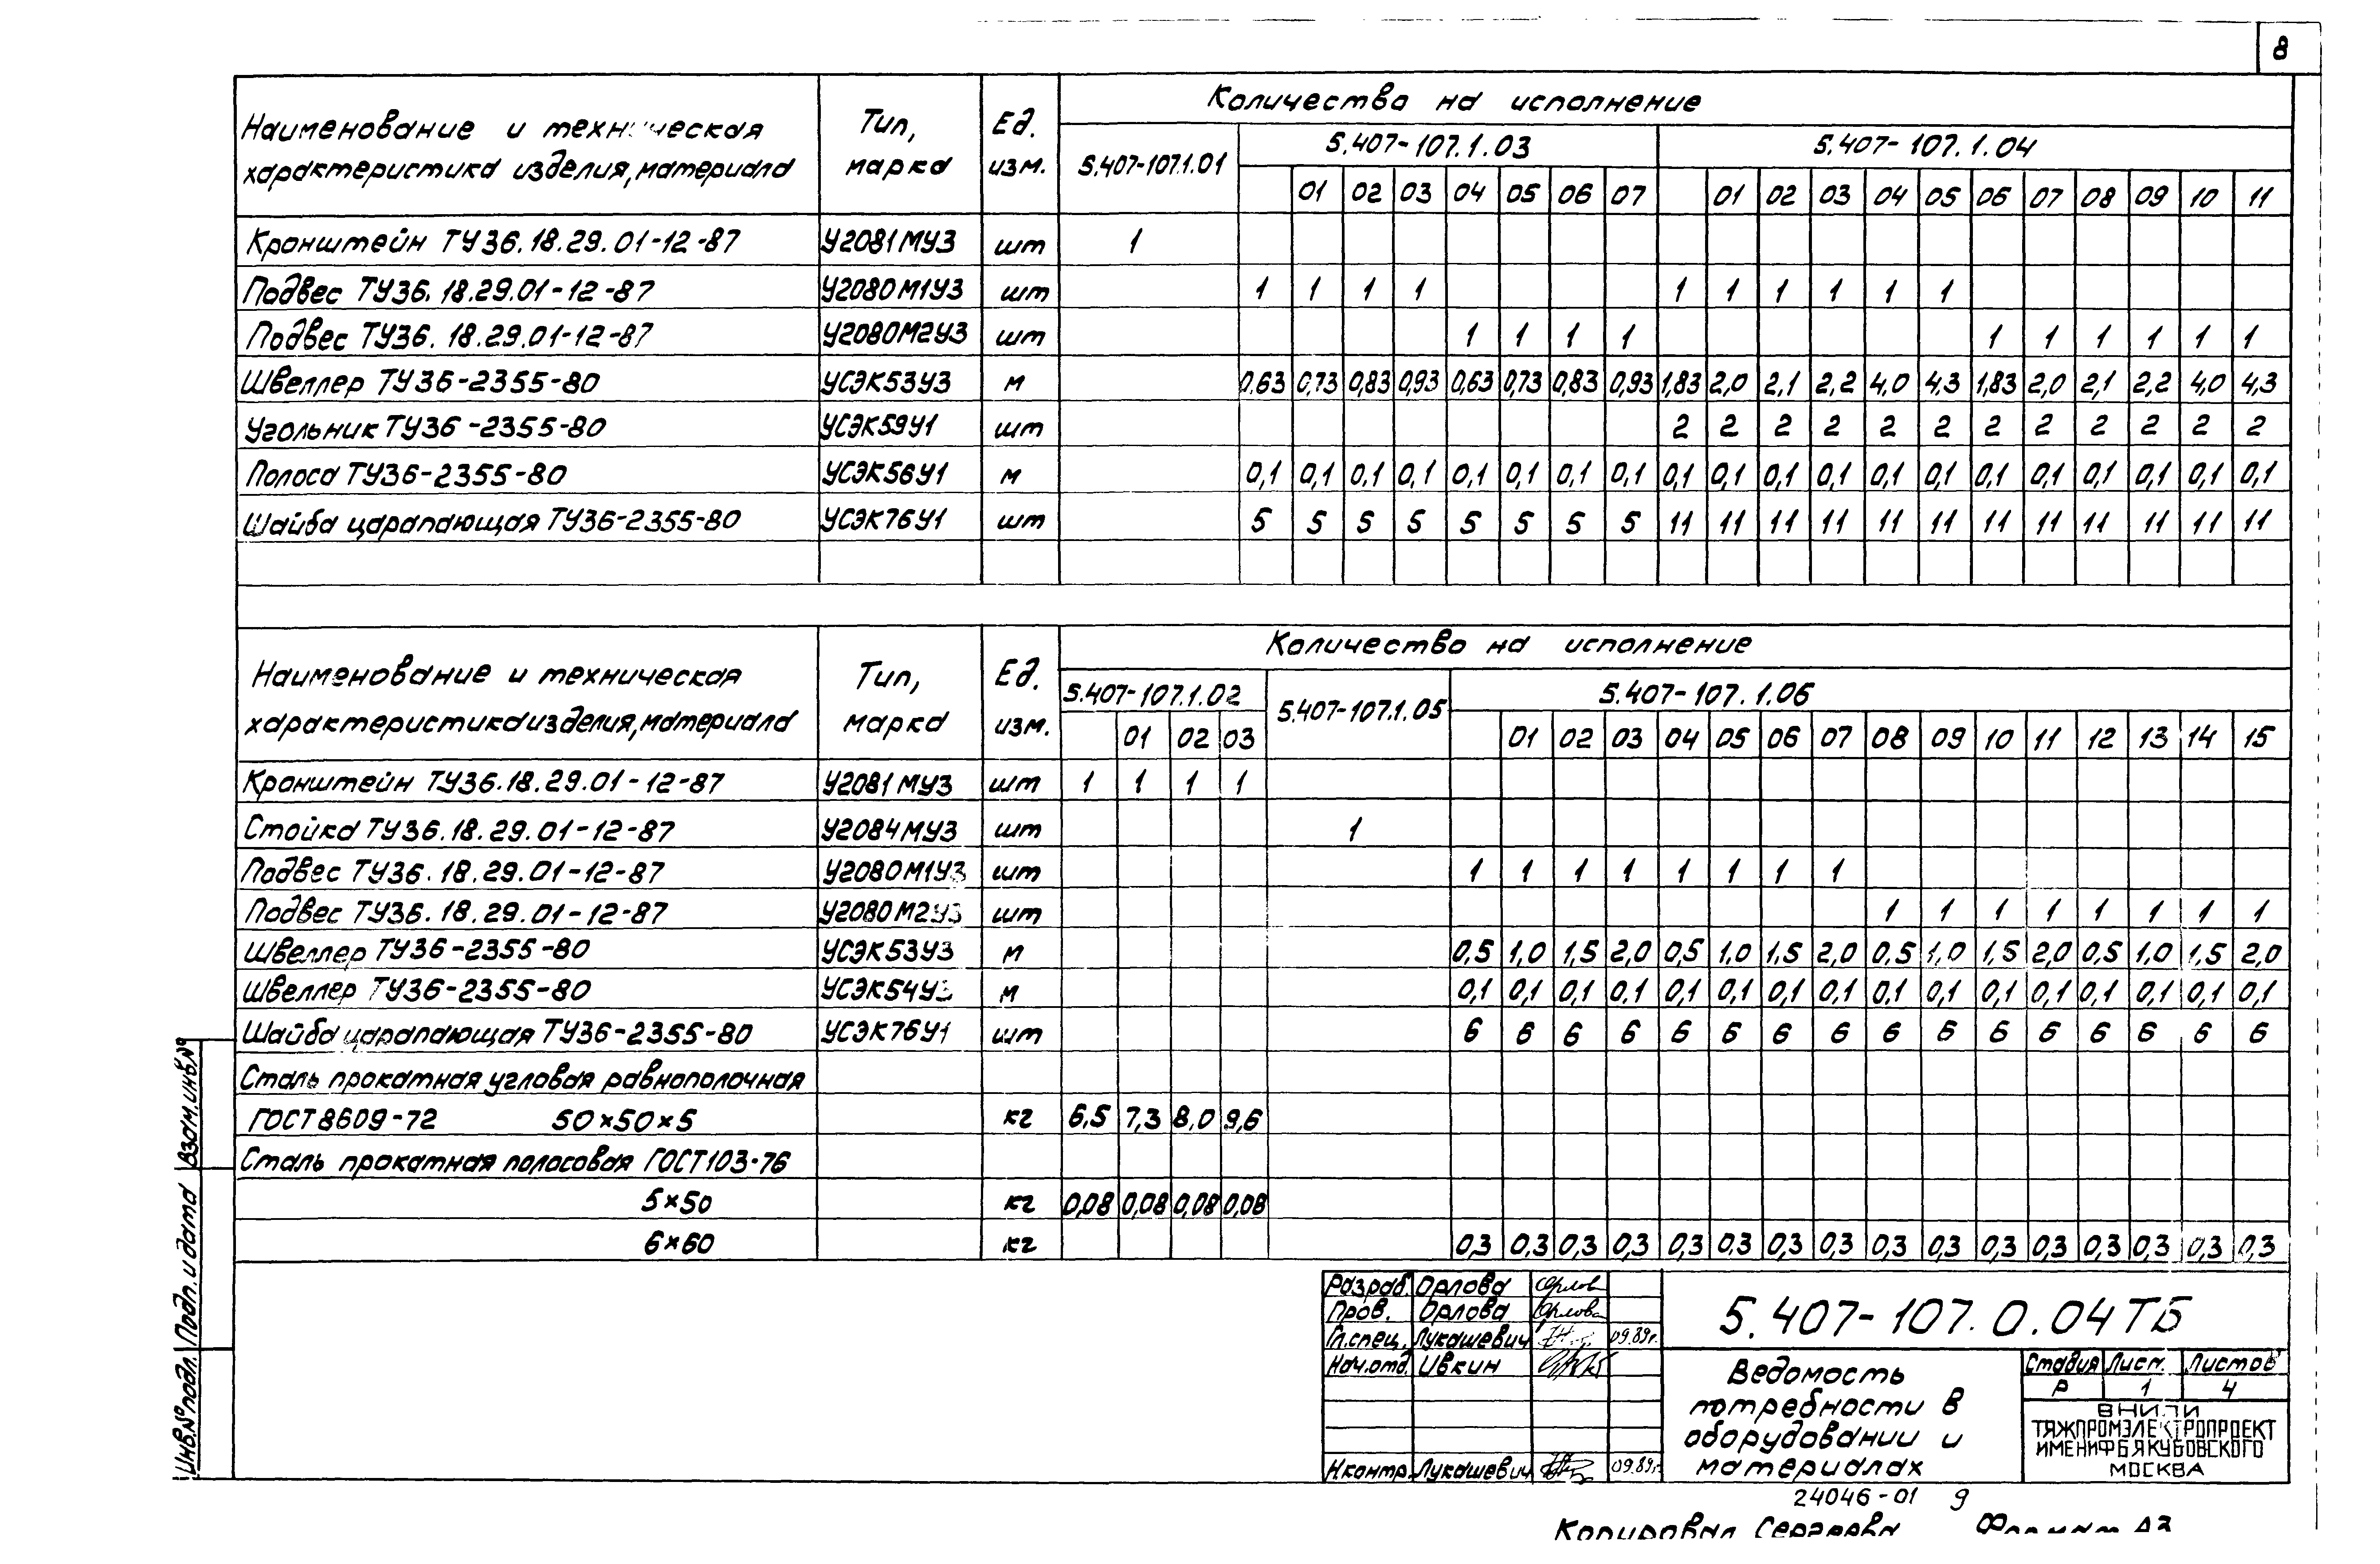 8
Наименование и техническая характеристика изделия, материала | Тип, марка | Ед. изм. | Количество на исполнение
5.407-107.1.01 | 5.407-107.1.03 | 5.407-107.1.04
01 02 03 04 05 06 07 | 01 02 03 04 05 06 07 08 09 10 11
Кронштейн ТУ36.18.29.01-12-87 У2081МУ3 шт 1
Подвес ТУ36.18.29.01-12-87 У2080М1У3 шт 1 1 1 1 1 1 1 1 1 1
Подвес ТУ36.18.29.01-12-87 У2080М2У3 шт 1 1 1 1 1 1 1 1 1 1
Швеллер ТУ36-2355-80 УСЭК53У3 м 0,63 0,73 0,83 0,93 0,63 0,73 0,83 0,93 1,83 2,0 2,1 2,2 4,0 4,3 1,83 2,0 2,1 2,2 4,0 4,3
Угольник ТУ36-2355-80 УСЭК59У1 шт 2 2 2 2 2 2 2 2 2 2 2 2
Полоса ТУ36-2355-80 УСЭК56У1 м 0,1 0,1 0,1 0,1 0,1 0,1 0,1 0,1 0,1 0,1 0,1 0,1 0,1 0,1 0,1 0,1 0,1 0,1 0,1 0,1
Шайба царапающая ТУ36-2355-80 УСЭК76У1 шт 5 5 5 5 5 5 5 5 11 11 11 11 11 11 11 11 11 11 11 11
Наименование и техническая характеристика изделия, материала | Тип, марка | Ед. изм. | Количество на исполнение
5.407-107.1.02 | 5.407-107.1.05 | 5.407-107.1.06
01 02 03 | 01 02 03 04 05 06 07 08 09 10 11 12 13 14 15
Кронштейн ТУ36.18.29.01-12-87 У2081МУ3 шт 1 1 1 1
Стойка ТУ36.18.29.01-12-87 У2084МУ3 шт 1
Подвес ТУ36.18.29.01-12-87 У2080М1У3 шт 1 1 1 1 1 1 1 1
Подвес ТУ36.18.29.01-12-87 У2080М2У3 шт 1 1 1 1 1 1 1 1
Швеллер ТУ36-2355-80 УСЭК53У3 м 0,5 1,0 1,5 2,0 0,5 1,0 1,5 2,0 0,5 1,0 1,5 2,0 0,5 1,0 1,5 2,0
Швеллер ТУ36-2355-80 УСЭК54У3 м 0,1 0,1 0,1 0,1 0,1 0,1 0,1 0,1 0,1 0,1 0,1 0,1 0,1 0,1 0,1 0,1
Шайба царапающая ТУ36-2355-80 УСЭК76У1 шт 6 6 6 6 6 6 6 6 6 6 6 6 6 6 6 6
Сталь прокатная угловая равнополочная
ГОСТ 8609-72 50×50×5 кг 6,5 7,3 8,0 9,6
Сталь прокатная полосовая ГОСТ 103-76
5×50 кг 0,08 0,08 0,08 0,08
6×60 кг 0,3 0,3 0,3 0,3 0,3 0,3 0,3 0,3 0,3 0,3 0,3 0,3 0,3 0,3 0,3 0,3
Взам.инв.№
Подп. и дата
Инв.№ подл.
Разраб. Орлова
Пров. Орлова
Гл.спец. Лукашевич 09.89г.
Нач.отд. Ивкин
Н.контр. Лукашевич 09.89г.
5.407-107.0.04ТБ
Ведомость
потребности в
оборудовании и
материалах
Стадия Лист Листов
Р 1 4
ВНИПИ
ТЯЖПРОМЭЛЕКТРОПРОЕКТ
ИМЕНИ Ф.Б.ЯКУБОВСКОГО
МОСКВА
24046-01 9
Копировал Сергеева Формат А3